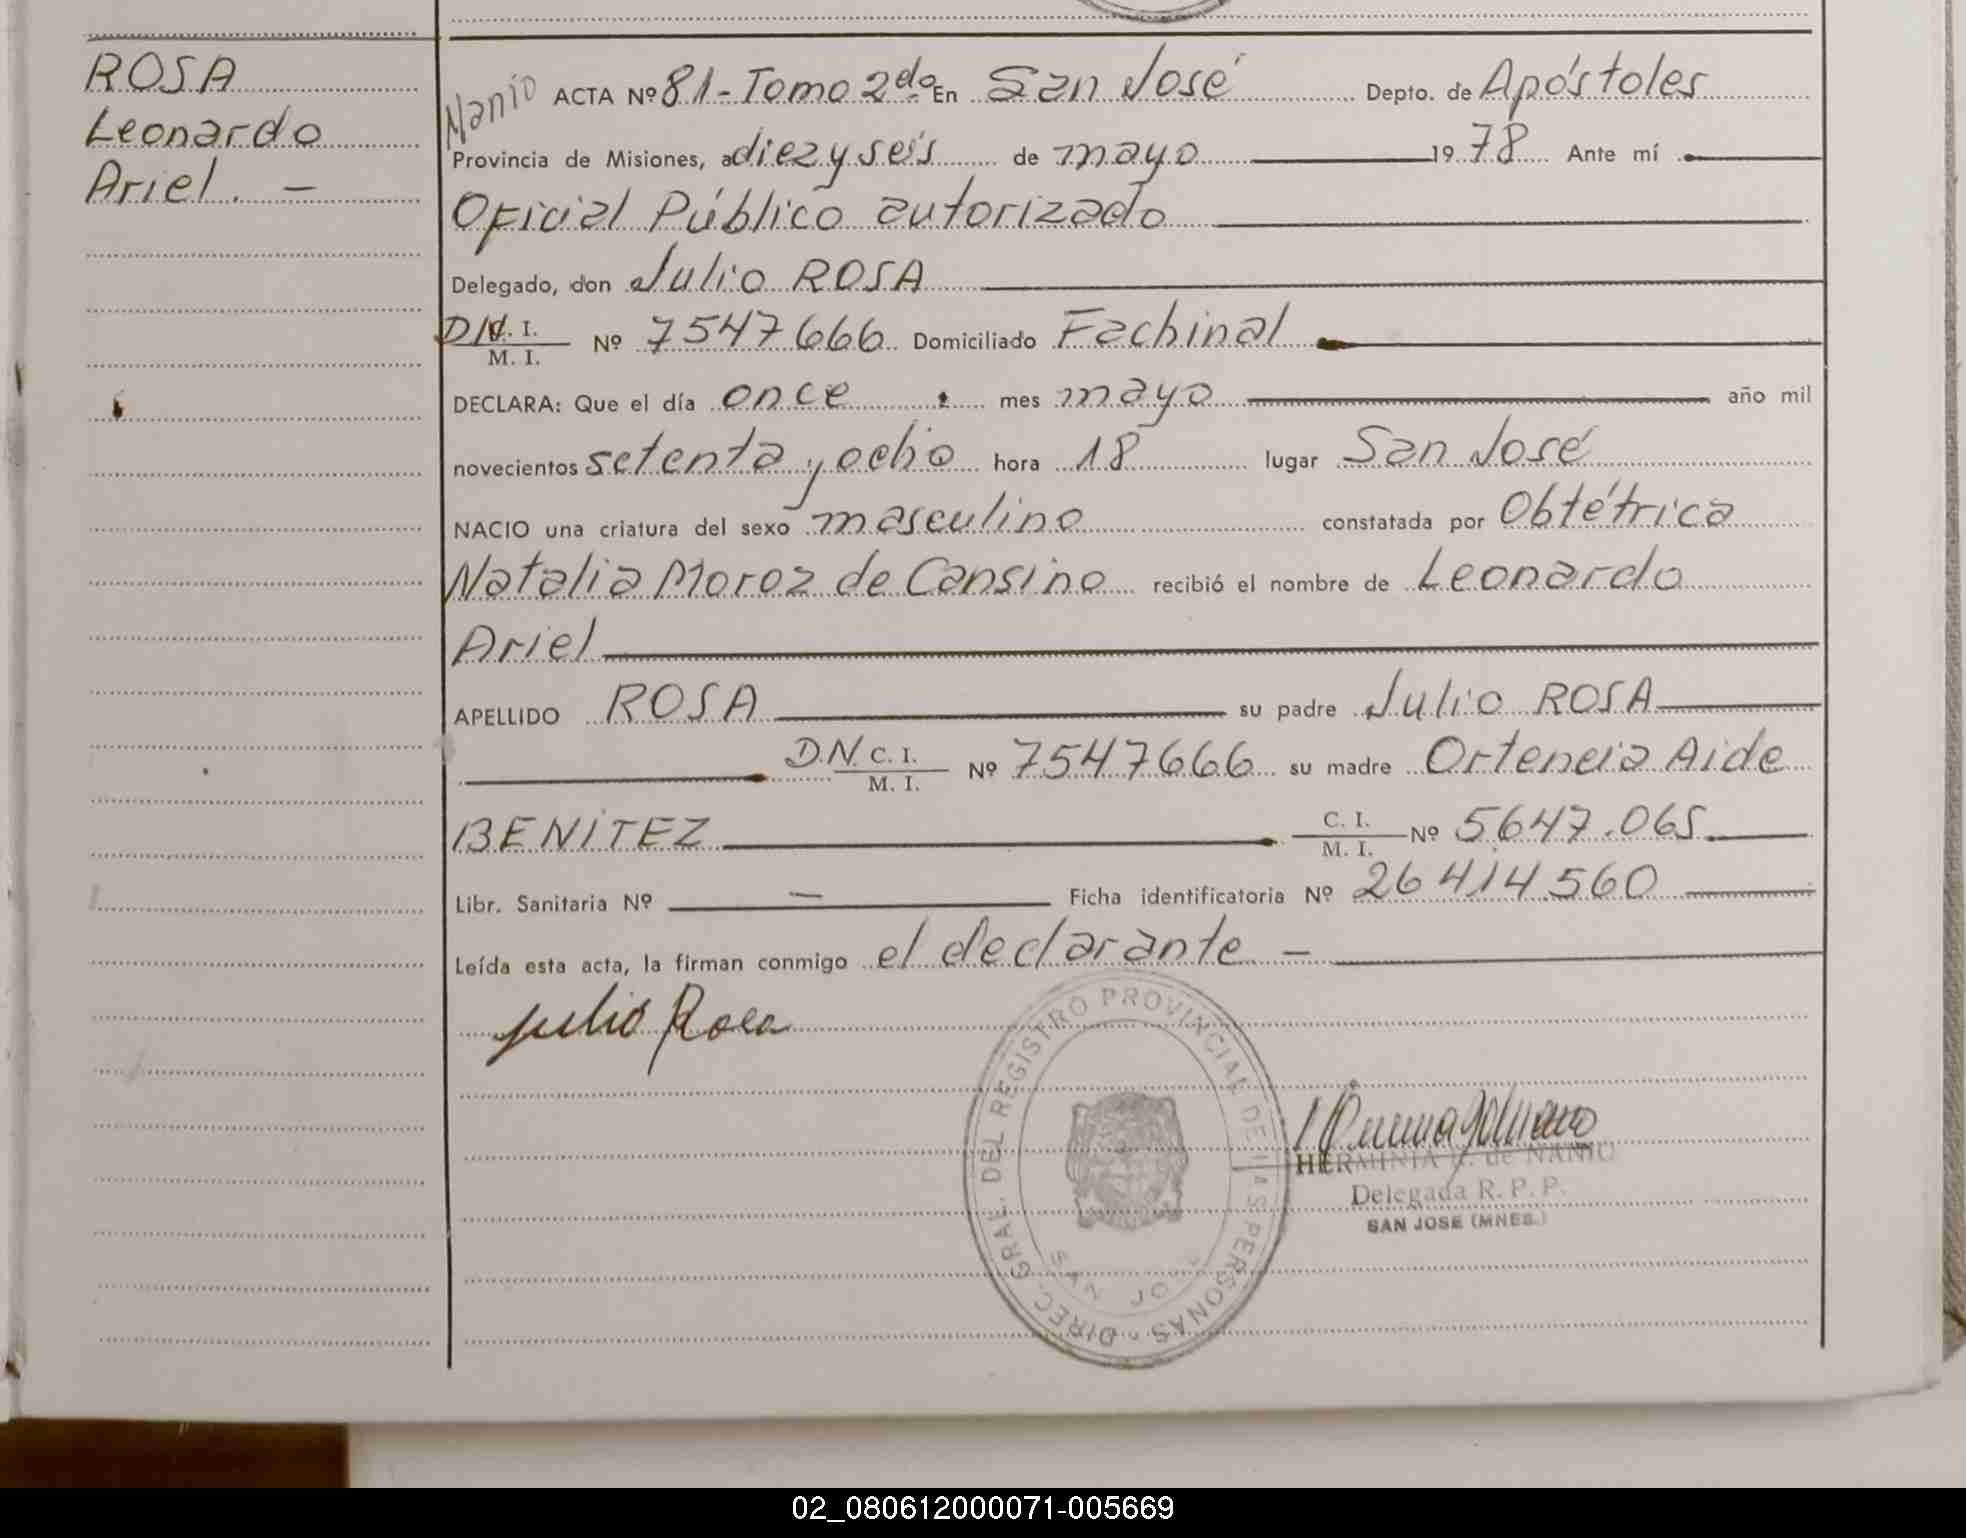 ROSA
Leonardo
Ariel. —
Nanio
ACTA Nº 81 - Tomo 2do. En San José Depto. de Apóstoles
Provincia de Misiones, a diez y seis de mayo 19 78 Ante mí
Oficial Público autorizado
Delegado, don Julio ROSA
DN C. I. / M. I. Nº 7547666 Domiciliado Fachinal
DECLARA: Que el día once mes mayo año mil
novecientos setenta y ocho hora 18 lugar San José
NACIO una criatura del sexo masculino constatada por Obtétrica
Natalia Moroz de Cansino recibió el nombre de Leonardo
Ariel
APELLIDO ROSA su padre Julio ROSA
D.N. C. I. / M. I. Nº 7547666 su madre Ortencia Aide
BENÍTEZ C. I. / M. I. Nº 5647.065
Libr. Sanitaria Nº — Ficha identificatoria Nº 26414.560
Leída esta acta, la firman conmigo el declarante —
Julio Rosa
DIREC. GRAL. DEL REGISTRO PROVINCIAL DE LAS PERSONAS
SAN JOSE
HERMINIA G. de NANIO
Delegada R. P. P.
SAN JOSE (MNES.)
02_080612000071-005669